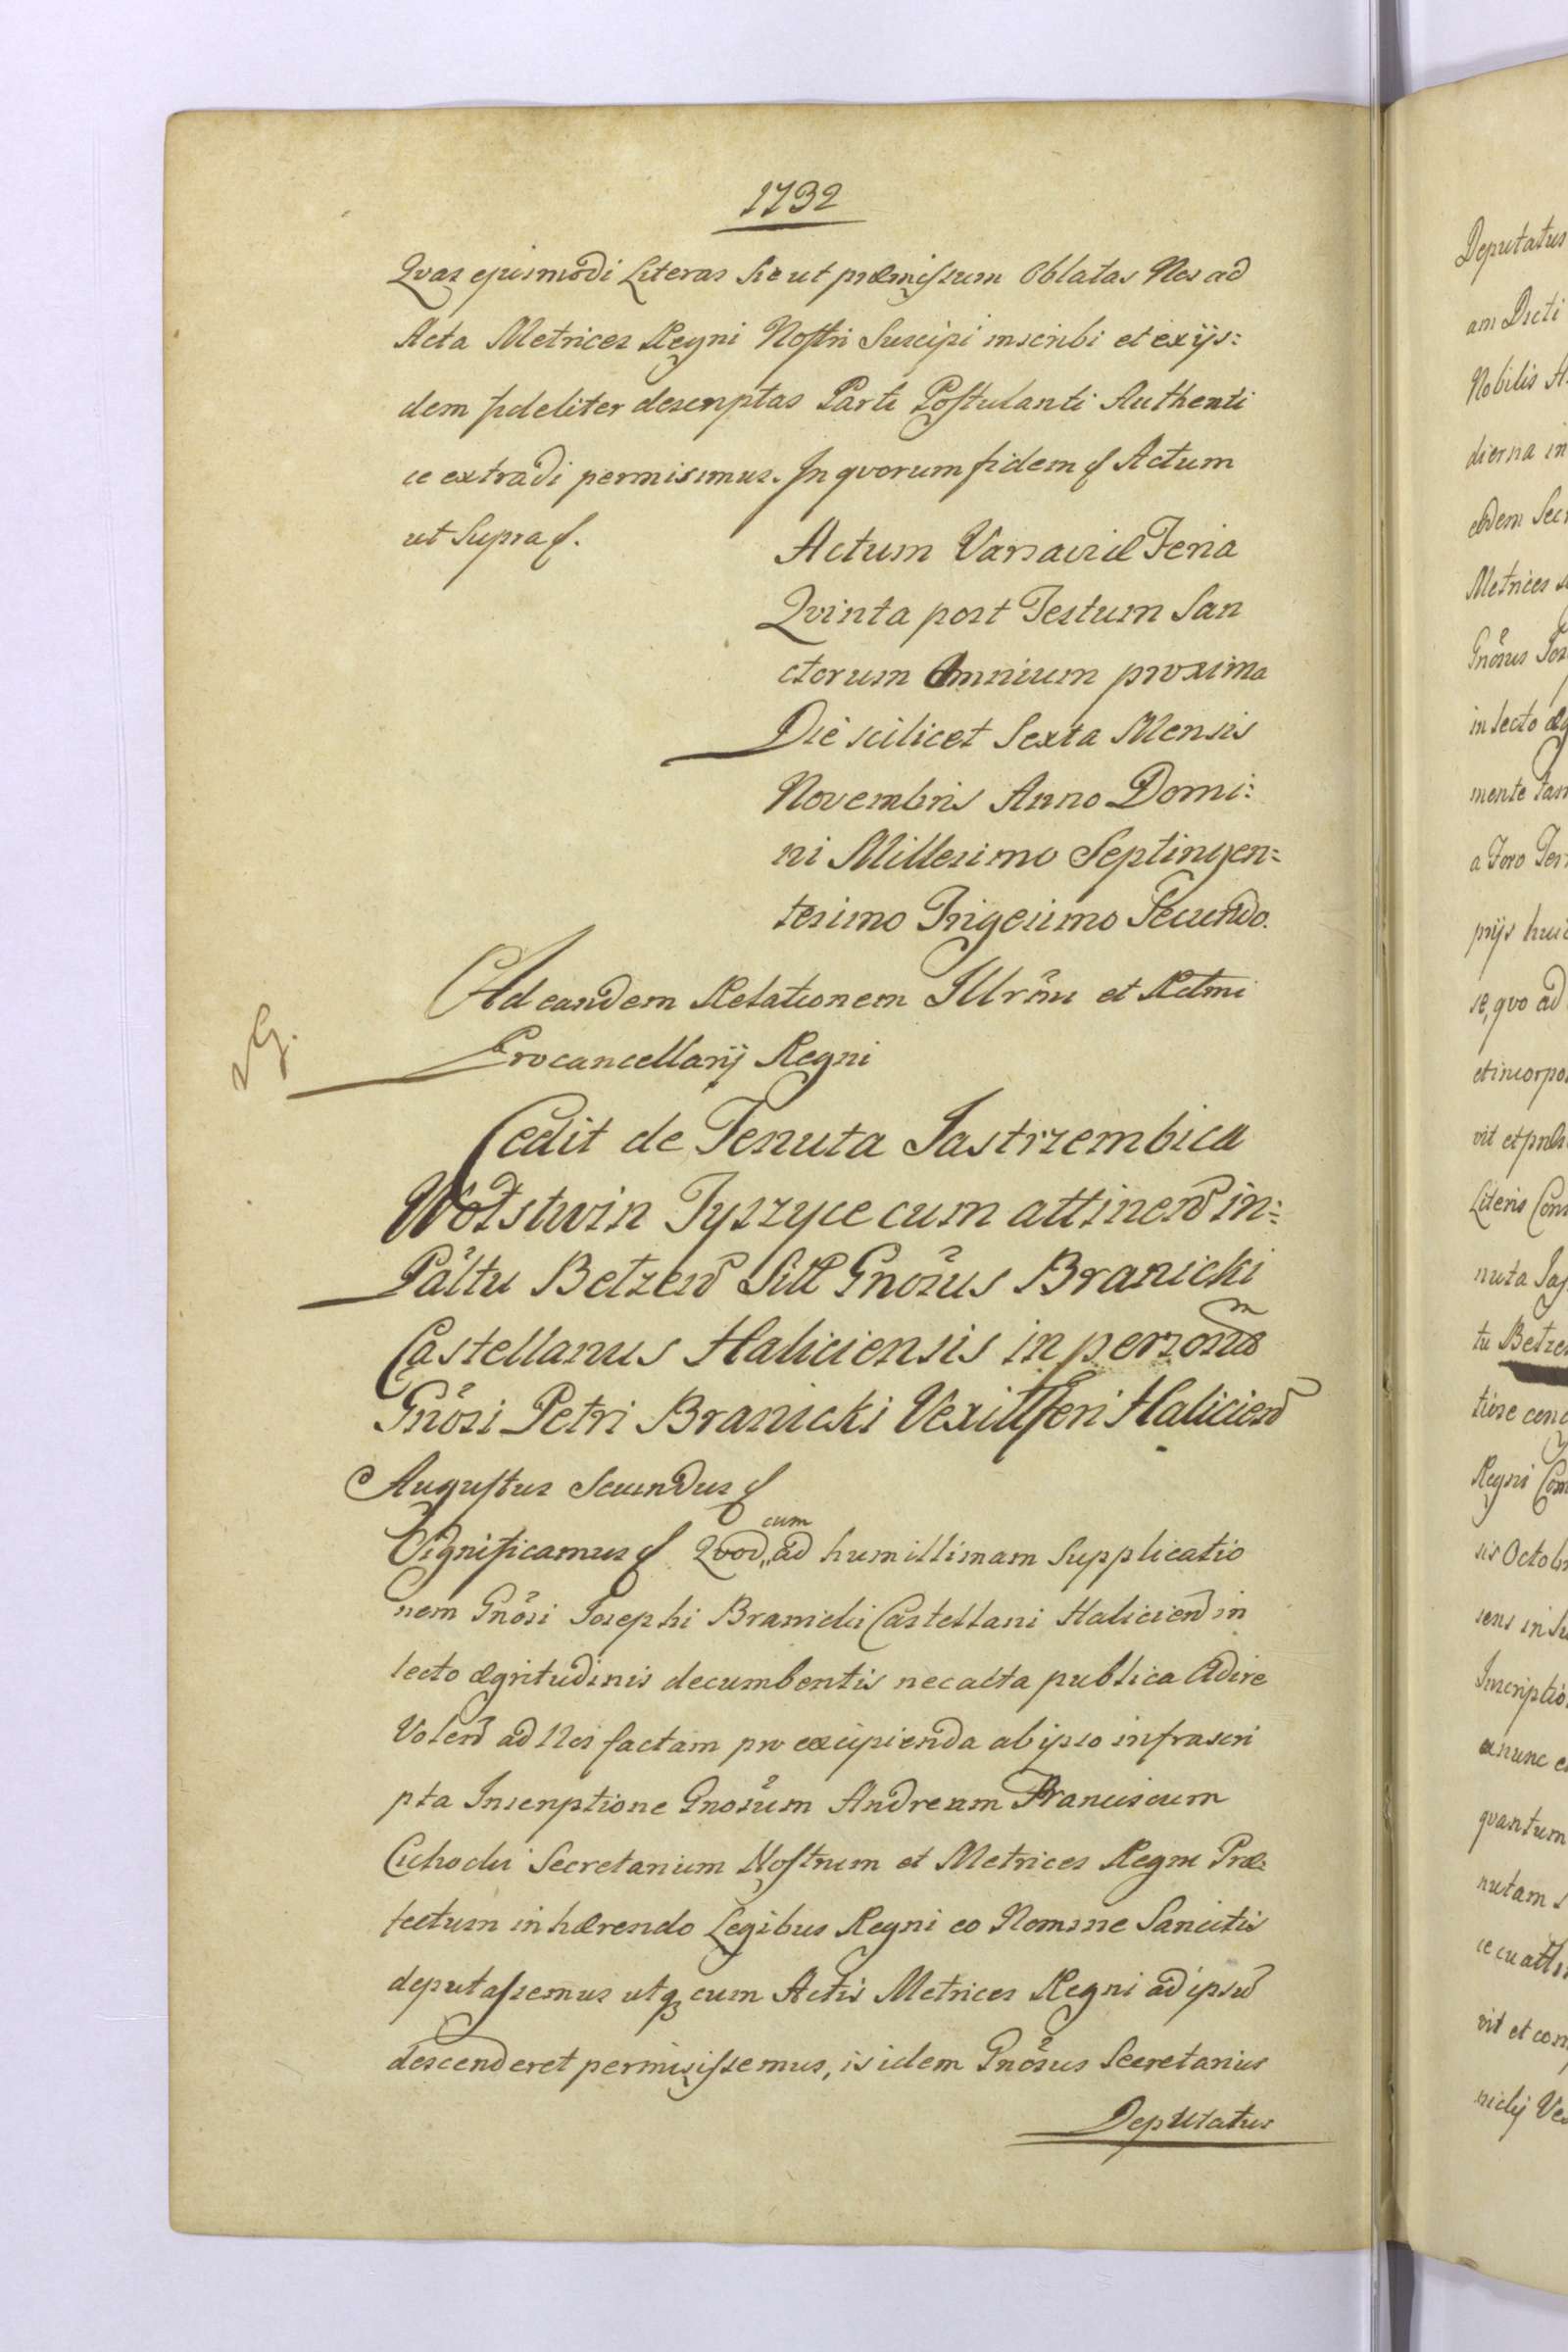 1732
Qvas ejusmodi Literas Sic ut præmissum Oblatas Nos ad
Acta Metrices Regni Nostri Suscipi inscribi et ex ijs=
dem fideliter descriptas Parti Postulanti Authenti
ce extradi permisimus. In qvorum fidem & Actum
ut Supra &.
Actum Varsaviæ Feria
Qvinta post Festum San
ctorum Omnium proxima
Die scilicet Sexta Mensis
Novembris Anno Domi=
ni Millesimo Septingen=
tesimo Trigesimo Secundo.
Ad eandem Relationem Illrmi et Rdmi
Procancellarij Regni
Cedit de Tenuta Jastrzembica
Wolstwin Tyszyce cum attinen in=
Paltu Betzen Sitt Gnosus Branicki
Castellanus Haliciensis in personam
Gnosi Petri Branicki Vexilliferi Halicien
Augustus Secundus &
Significamus & Qvod cum ad humillimam Supplicatio
nem Gnosi Josephi Branicki Castellani Halicien in
lecto ægritudinis decumbentis nec acta publica Adire
Volen ad Nos factam pro excipienda ab ipso infrascri
pta Inscriptione Gnosum Andream Franciscum
Cichocki Secretarium Nostrum et Metrices Regni Præ=
fectum inhærendo Legibus Regni eo Nomine Sancitis
deputassemus utq cum Actis Metrices Regni ad ipsu
descenderet permisissemus, is idem Gnosus Secretarius
Deputatus
Deputatus
am Dicti
Nobilis
dierna in
eodem
Metrices
Gnosus
in lecto
mente
a Foro
prijs
se, qvo ad
et incorpo
vit et
Literis
nuta
tu
Regni
sis
sens in
Inscriptio
exnunc
qvantum
nutam
vit et